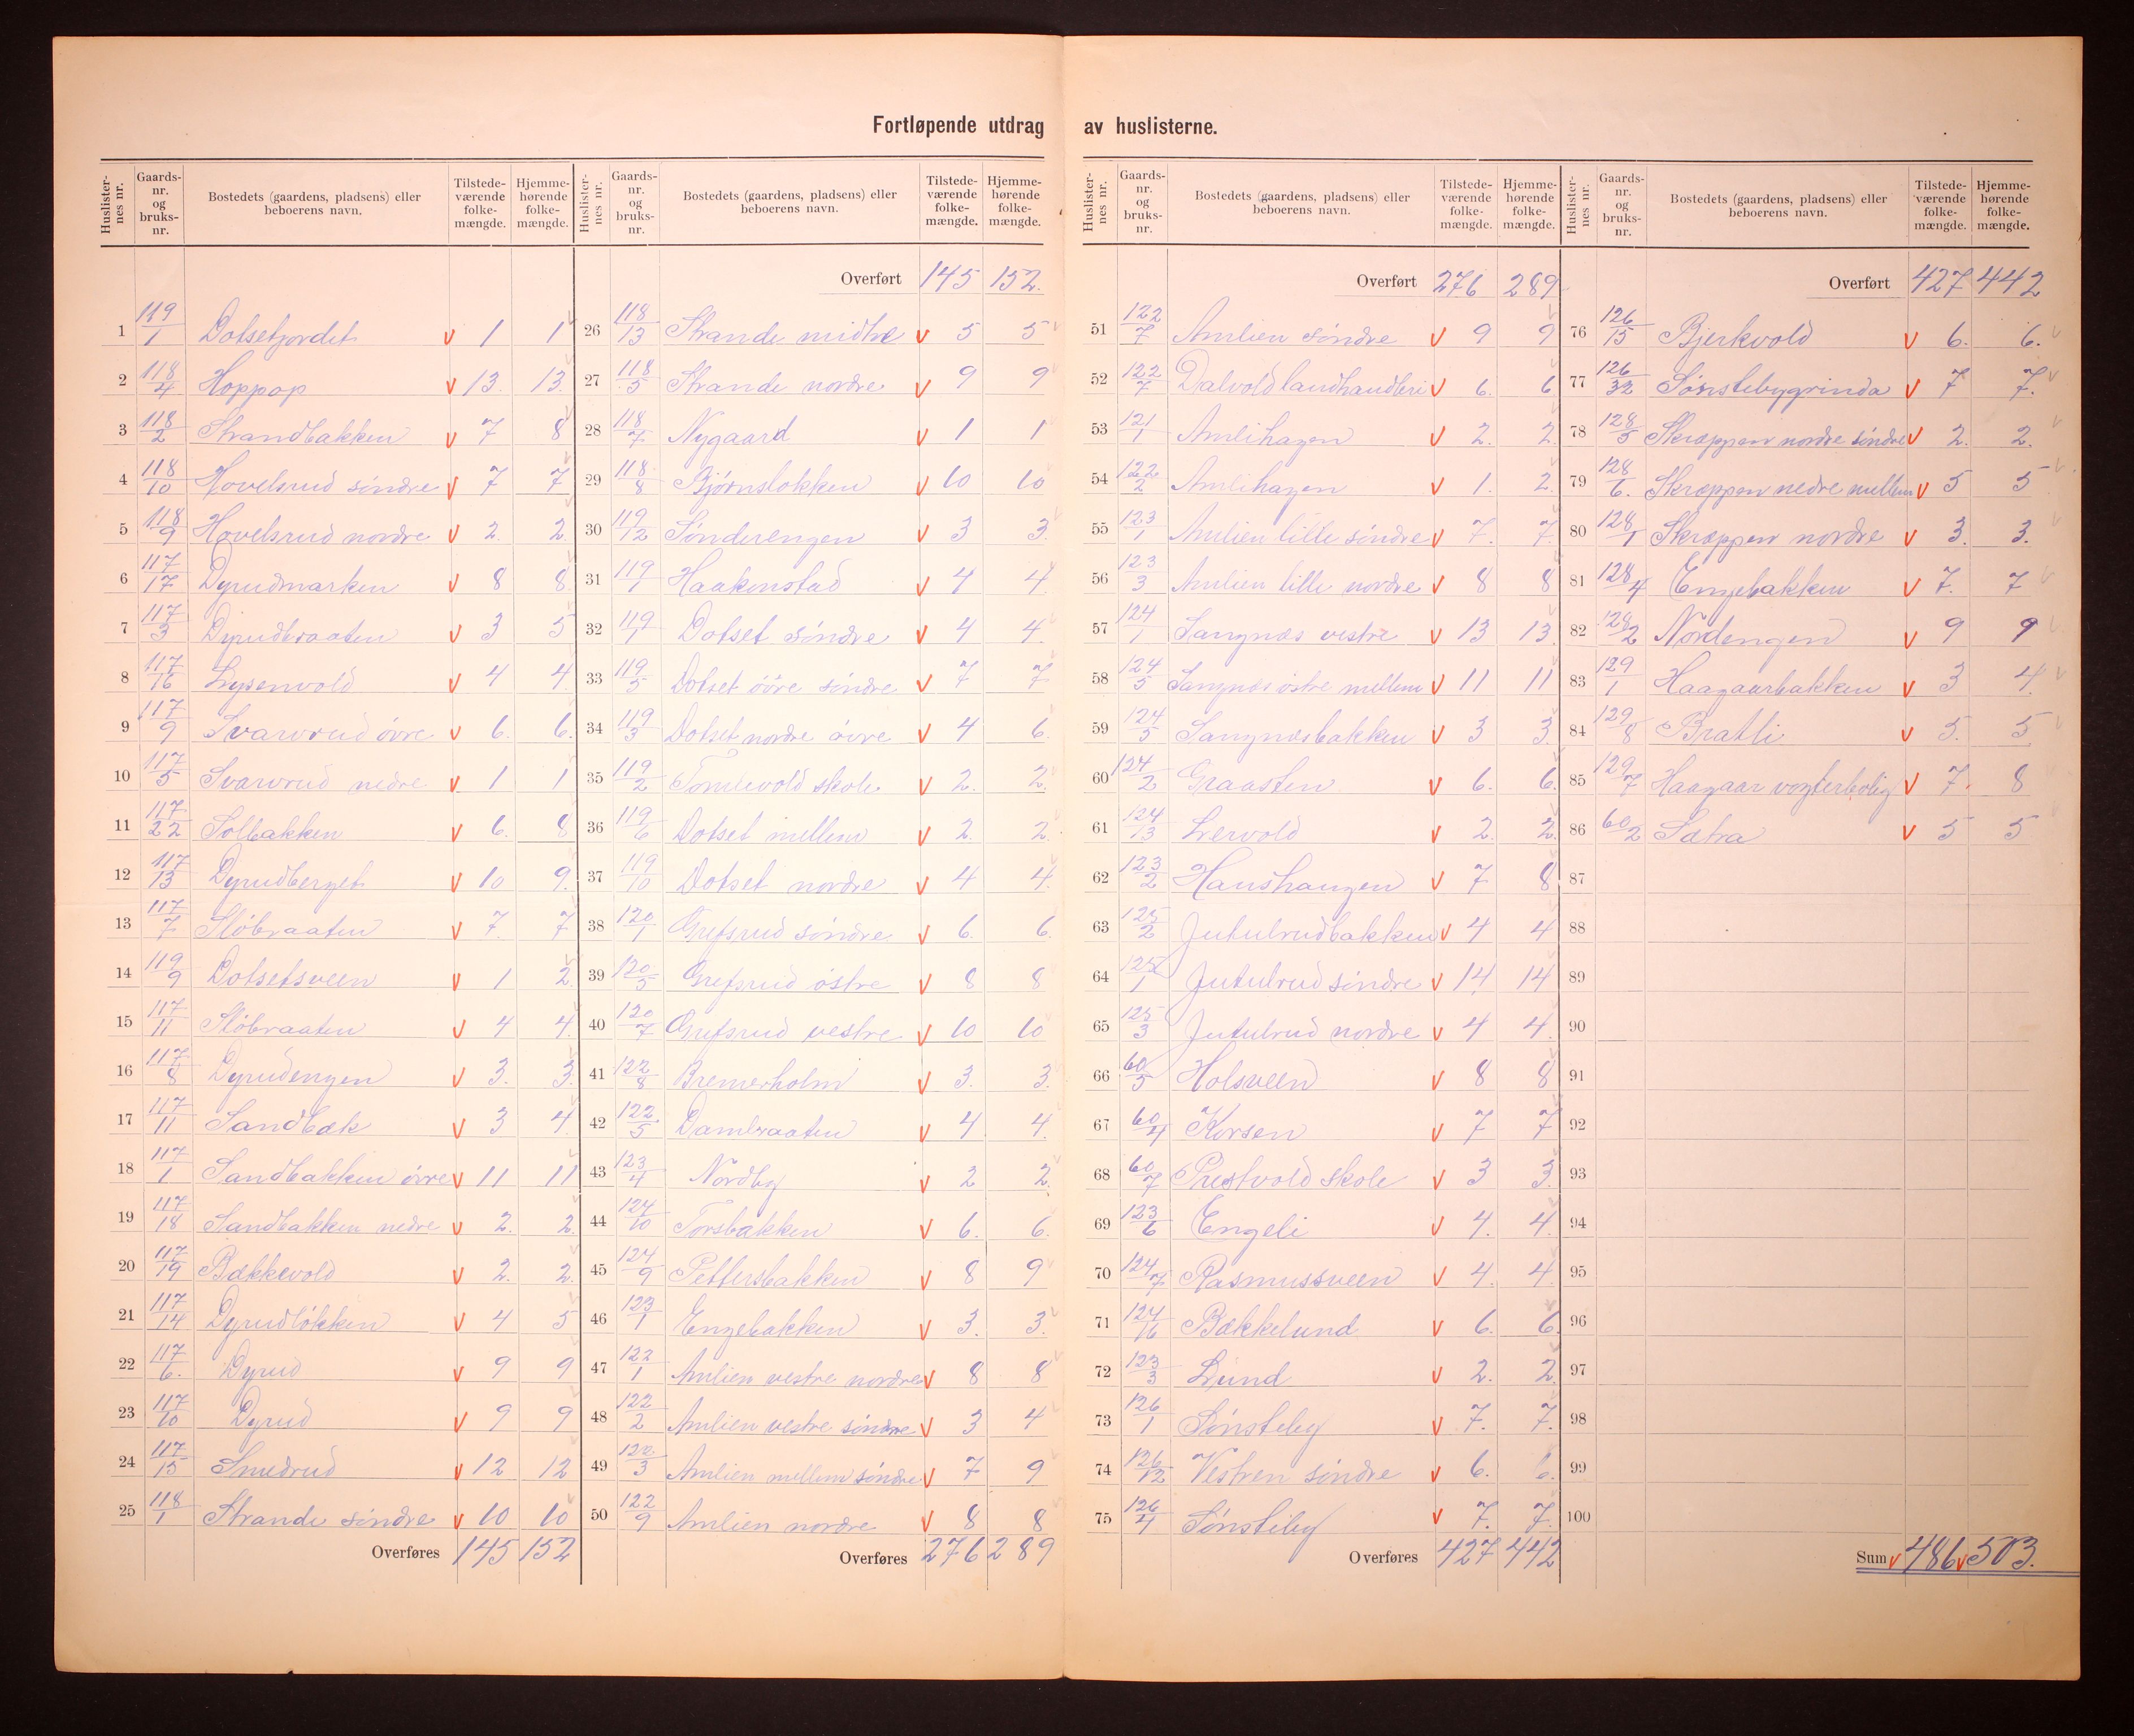 Fortløpende utdrag av huslisterne.
Huslister-nes nr. | Gaards-nr. og bruks-nr. | Bostedets (gaardens, pladsens) eller beboerens navn. | Tilstede-værende folke-mængde. | Hjemme-hørende folke-mængde.
1 119/1 Dotsetjordet v 1 1
2 118/4 Hoppop v 13. 13.
3 118/2 Strandbakken v 7 8
4 118/10 Hovelsrud söndre v 7 7
5 118/9 Hovelsrud nordre v 2. 2.
6 117/17 Dyrudmarken v 8 8
7 117/3 Dyrudbraaten v 3 5
8 117/16 Lysenvold v 4 4
9 117/9 Svarvrud övre v 6. 6.
10 117/5 Svarvrud nedre v 1 1
11 117/22 Solbakken v 6. 8
12 117/13 Dyrudberget v 10 9.
13 117/7 Slöbraaten v 7. 7
14 119/9 Dotsetsveen v 1 2.
15 117/11 Slöbraaten v 4 4.
16 117/8 Dyrudengen v 3. 3.
17 117/11 Sandbæk v 3 4
18 117/1 Sandbakken övre v 11 11
19 117/18 Sandbakken nedre v 2. 2.
20 117/19 Bækkevold v 2. 2.
21 117/14 Dyrudlökken v 4 5
22 117/6. Dyrud v 9 9
23 117/10 Dyrud v 9 9
24 117/15 Smedrud v 12 12
25 118/1 Strande söndre v 10 10
Overføres 145 152
Huslister-nes nr. | Gaards-nr. og bruks-nr. | Bostedets (gaardens, pladsens) eller beboerens navn. | Tilstede-værende folke-mængde. | Hjemme-hørende folke-mængde.
Overført 145 152.
26 118/13 Strande midtre v 5 5
27 118/5 Strande nordre v 9 9
28 118/7 Nygaard v 1 1
29 118/8 Bjørnslokken v 10 10
30 119/12 Sönderengen v 3 3.
31 119/1 Haakenstad v 4 4
32 119/1 Dotset söndre v 4 4.
33 119/5 Dotset övre söndre v 7 7
34 119/3 Dotset nordre övre v 4 6
35 119/2 Tomlevold skole v 2. 2.
36 119/6 Dotset mellem v 2. 2.
37 119/10 Dotset nordre v 4 4.
38 120/1 Grefsrud söndre v 6. 6.
39 120/5 Grefsrud östre v 8 8
40 120/7 Grefsrud vestre v 10 10
41 122/8 Bremerholm v 3. 3.
42 122/5 Dambraaten v 4 4.
43 123/4 Nordby v 2 2.
44 124/10 Torsbakken v 6. 6.
45 124/9 Pettersbakken v 8 9
46 123/1 Engebakken v 3. 3.
47 122/1 Amlien vestre nordre v 8 8
48 122/2 Amlien vestre söndre v 3 4
49 122/3 Amlien mellem söndre v 7 9
50 122/9 Amlien nordre v 8 8
Overføres 276 289
Huslister-nes nr. | Gaards-nr. og bruks-nr. | Bostedets (gaardens, pladsens) eller beboerens navn. | Tilstede-værende folke-mængde. | Hjemme-hørende folke-mængde.
Overført 276 289
51 122/7 Amlien söndre v 9 9
52 122/7 Dalvold landhandleri v 6. 6
53 121/1 Amlihagen v 2. 2.
54 122/2 Amlihagen v 1. 2.
55 123/1 Amlien lille söndre v 7. 7.
56 123/3 Amlien lille nordre v 8 8
57 124/1 Sangnæs vestre v 13 13
58 124/5 Sangnæs östre mellem v 11 11
59 124/5 Sangnæsbakken v 3 3.
60 124/2 Graasten v 6. 6.
61 124/13 Lervold v 2. 2.
62 123/2 Haushaugen v 7 8
63 125/2 Jutulrudbakken v 4 4
64 125/1 Jutulrud söndre v 14 14
65 125/3 Jutulrud nordre v 4 4.
66 60/5 Holsveen v 8 8
67 60/4 Korsen v 7 7
68 60/7 Prestvold skole v 3 3.
69 123/6 Engeli v 4. 4.
70 124/7 Rasmussveen v 4. 4.
71 124/16 Bækkelund v 6. 6.
72 123/3 Lund v 2. 2.
73 126/1 Sönsteby v 7. 7.
74 126/12 Vestren söndre v 6. 6.
75 126/4 Sönsteby v 7. 7.
Overføres 427 442
Huslister-nes nr. | Gaards-nr. og bruks-nr. | Bostedets (gaardens, pladsens) eller beboerens navn. | Tilstede-værende folke-mængde. | Hjemme-hørende folke-mængde.
Overført 427 442
76 126/15 Bjerkvold v 6. 6.
77 126/32 Sönstebygrinda v 7 7.
78 128/5 Skræppen nordre söndre v 2. 2.
79 128/6. Skræppen nedre mellem v 5 5
80 128/1 Skræppen nordre v 3. 3.
81 128/4 Engebakken v 7. 7
82 128/2 Nordengen v 9 9
83 129/1 Haagaarbakken v 3 4.
84 129/8 Bratli v 5. 5
85 129/7 Haagaar vogterbolig v 7. 8
86 60/2 Sætra v 5 5
87
88
89
90
91
92
93
94
95
96
97
98
99
100
Sum v 486 v 503.